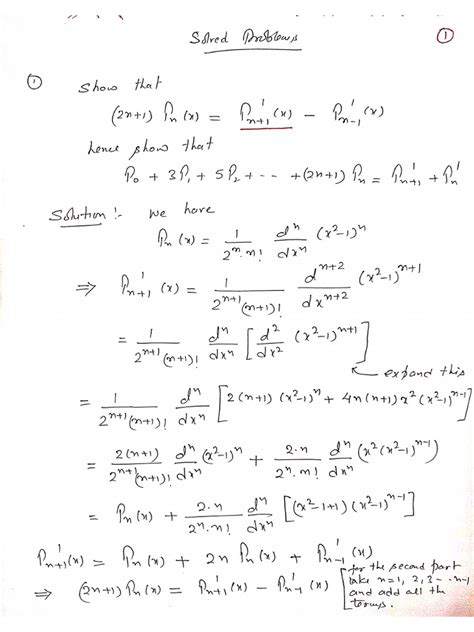 Solved Problems ①
① Show that
(2n+1) Pₙ(x) = P'ₙ₊₁(x) - P'ₙ₋₁(x)
hence show that
P₀ + 3P₁ + 5P₂ + - - - + (2n+1) Pₙ = P'ₙ₊₁ + P'ₙ
Solution :- we have
Pₙ(x) = 1/(2ⁿ·n!) dⁿ/dxⁿ (x²-1)ⁿ
⇒ P'ₙ₊₁(x) = 1/(2ⁿ⁺¹(n+1)!) dⁿ⁺²/dxⁿ⁺² (x²-1)ⁿ⁺¹
= 1/(2ⁿ⁺¹(n+1)!) dⁿ/dxⁿ [d²/dx² (x²-1)ⁿ⁺¹]
expand this
= 1/(2ⁿ⁺¹(n+1)!) dⁿ/dxⁿ [2(n+1)(x²-1)ⁿ + 4n(n+1)x²(x²-1)ⁿ⁻¹]
= 2(n+1)/(2ⁿ⁺¹(n+1)!) dⁿ/dxⁿ (x²-1)ⁿ + 2·n/(2ⁿ·n!) dⁿ/dxⁿ (x²(x²-1)ⁿ⁻¹)
= Pₙ(x) + 2·n/(2ⁿ·n!) dⁿ/dxⁿ [(x²-1+1)(x²-1)ⁿ⁻¹]
P'ₙ₊₁(x) = Pₙ(x) + 2n Pₙ(x) + P'ₙ₋₁(x)
⇒ (2n+1) Pₙ(x) = P'ₙ₊₁(x) - P'ₙ₋₁(x)
[for the second part
take n=1, 2, 3 - - n-1
and add all the
terms.